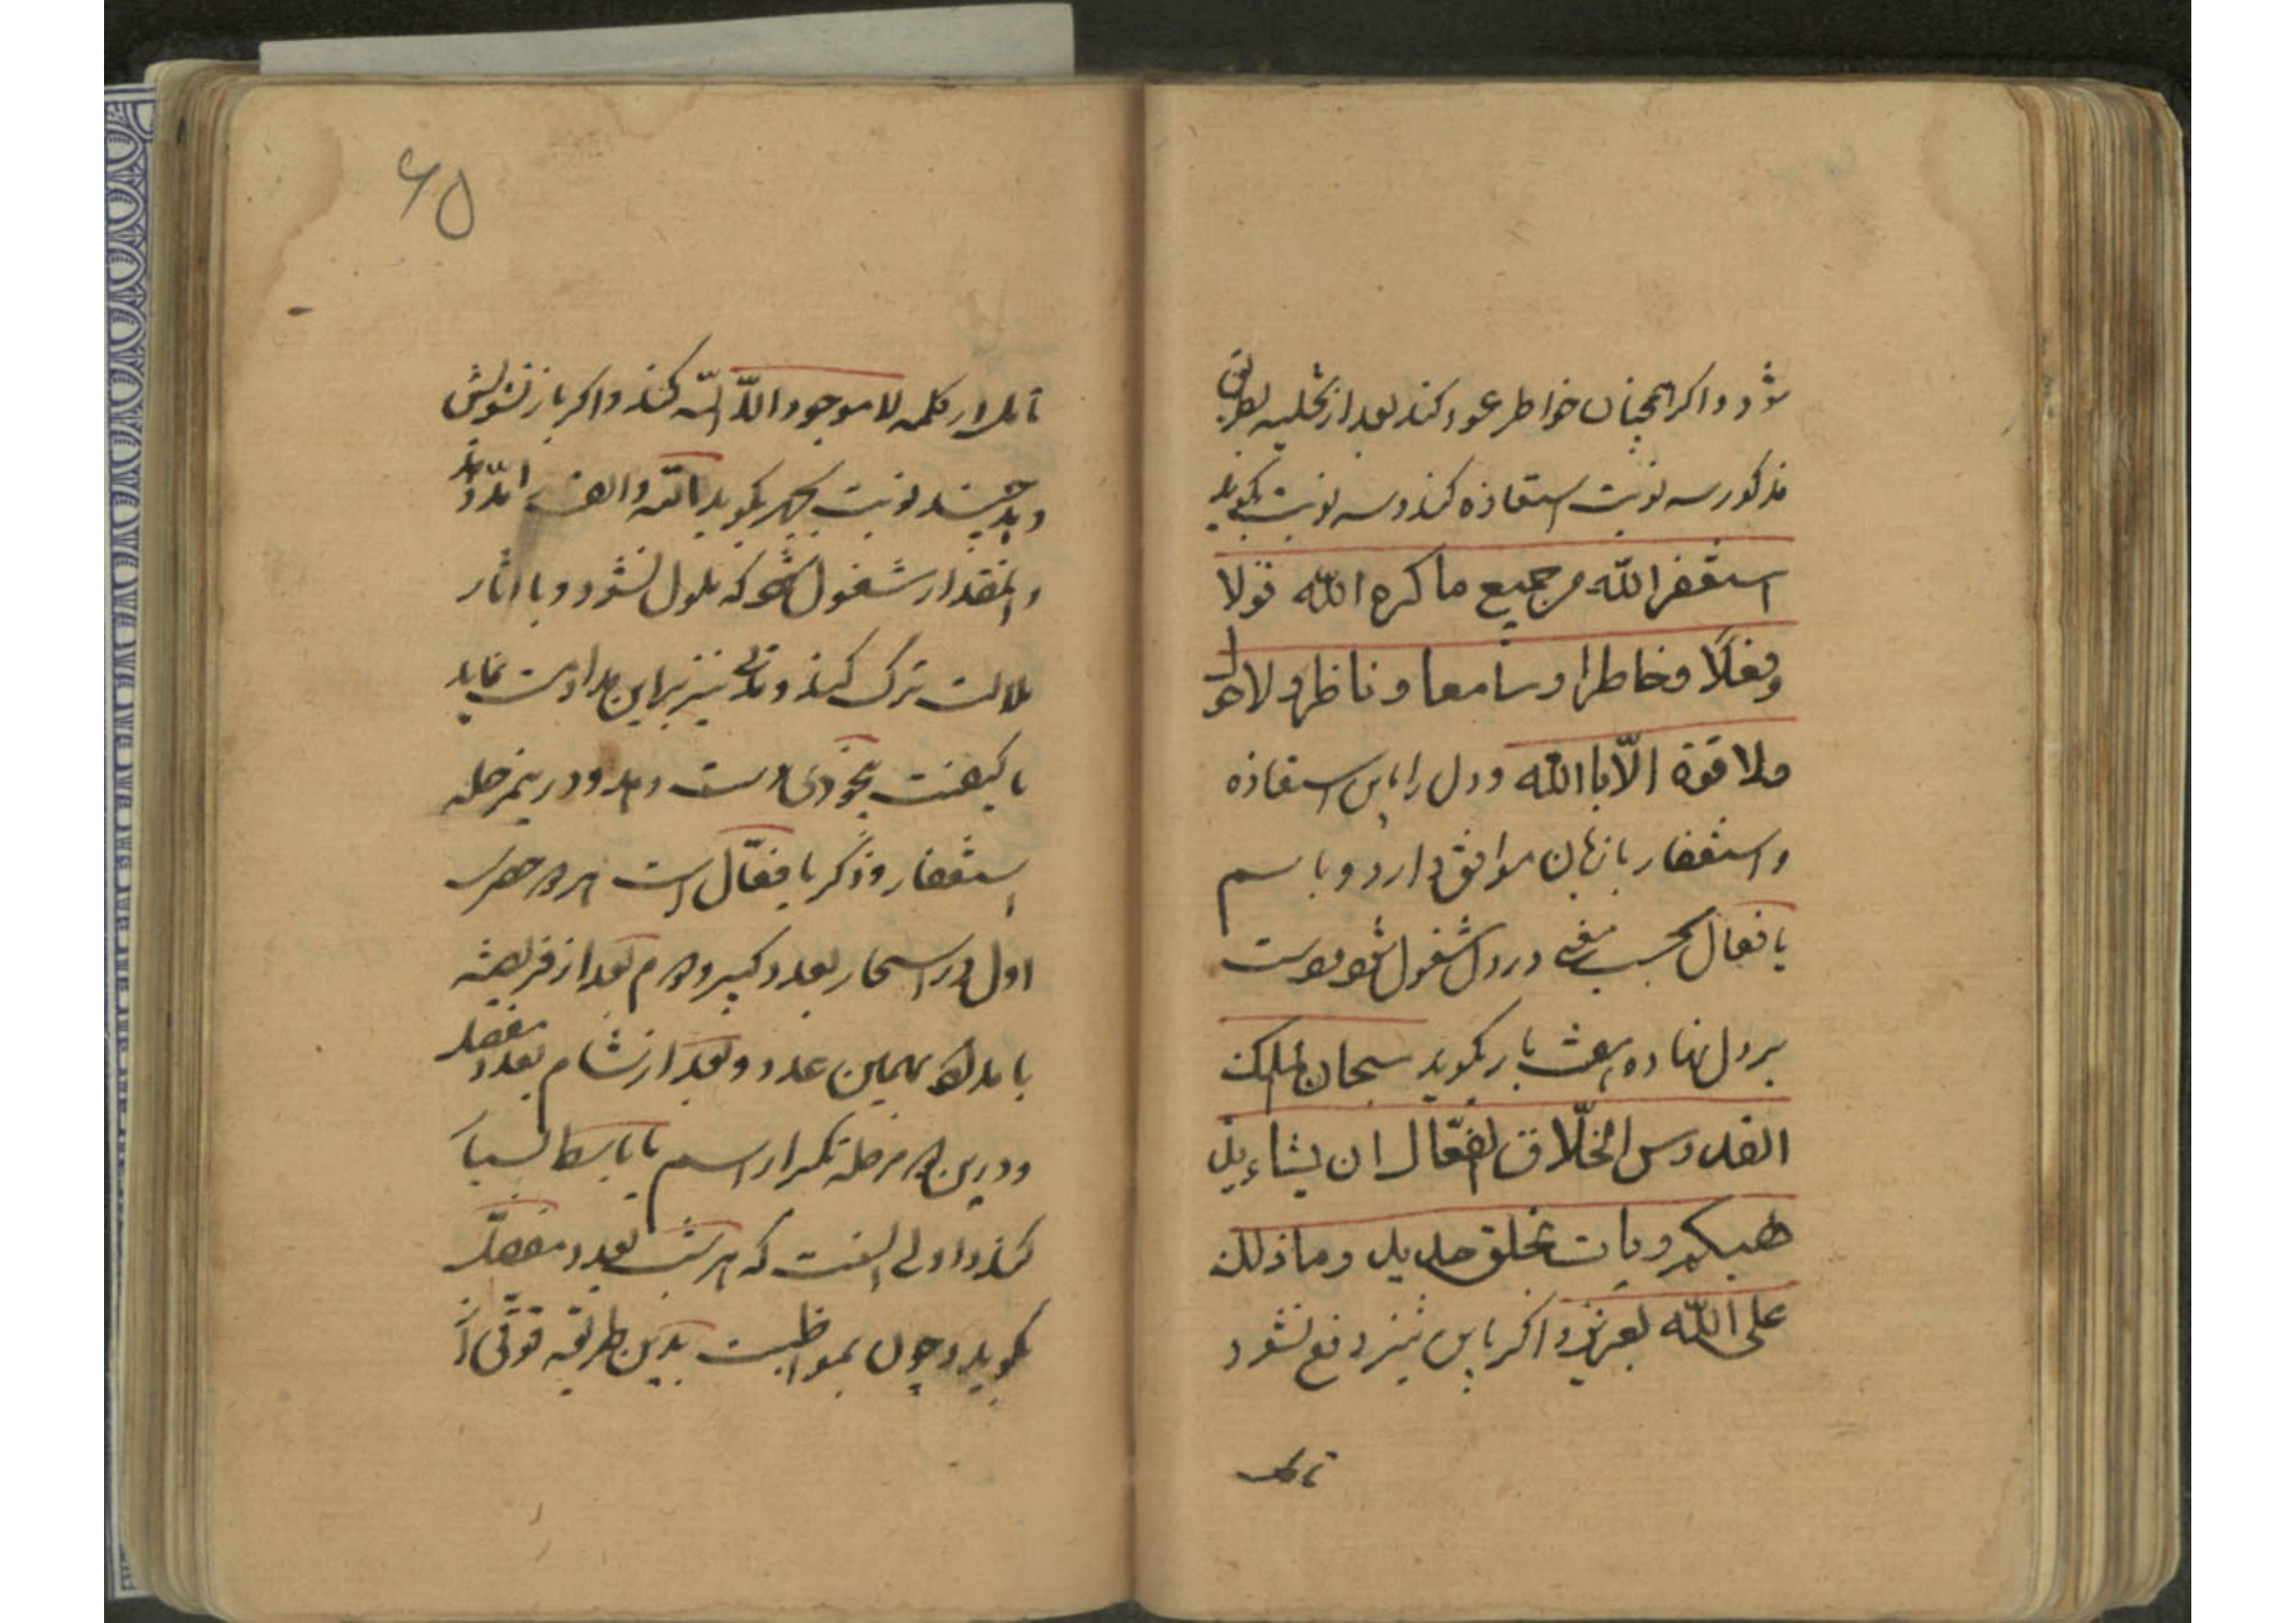 شود و اکر همچنان خواطر عود کند بعد از تخلیه بطریق
مذکور سه نوبت استعاذه کند و سه نوبت بکوید
استغفر الله من جمیع ما کره الله قولا
وفعلا وخاطرا وسامعا وناظرا ولا حول
ولا قوة الّا باالله و دل را باین استعاذه
و استغفار با زبان موافق دارد و باسم
یا فعال بحسب معنی در دل مشغول شود و دست
بر دل نهاده هفت بار بکوید سبحان الملک
القدوس الخلّاق الفعّال ان یشاء یذ
هبکم ویات بخلق جدید وما ذلک
علی الله بعزیز و اکر باین نیز دفع نشود
تامل
۶۵
تامل در کلمه لا موجود الّا الله کند و اکر باز تشویش
دهد چند نوبت بجهر بکوید الله و الف را مد دهد
و انمقدار مشغول شود که ملول نشود و با اثار
ملالت ترک کند و
با کیفیت بیخودی دست دهد و درینمرحله
استغفار و ذکر یا فعّال است
اول در اسحار بعدد کبیر و دوم بعد از فریضه
بامداد بهمین عدد و بعد از شام بعدد مفصل
و درین مرحله تکرار اسم یا باسط
کند و اولی انست که هر شب بعدد مفصل
بکوید و چون بمواظبت بدین طریقه